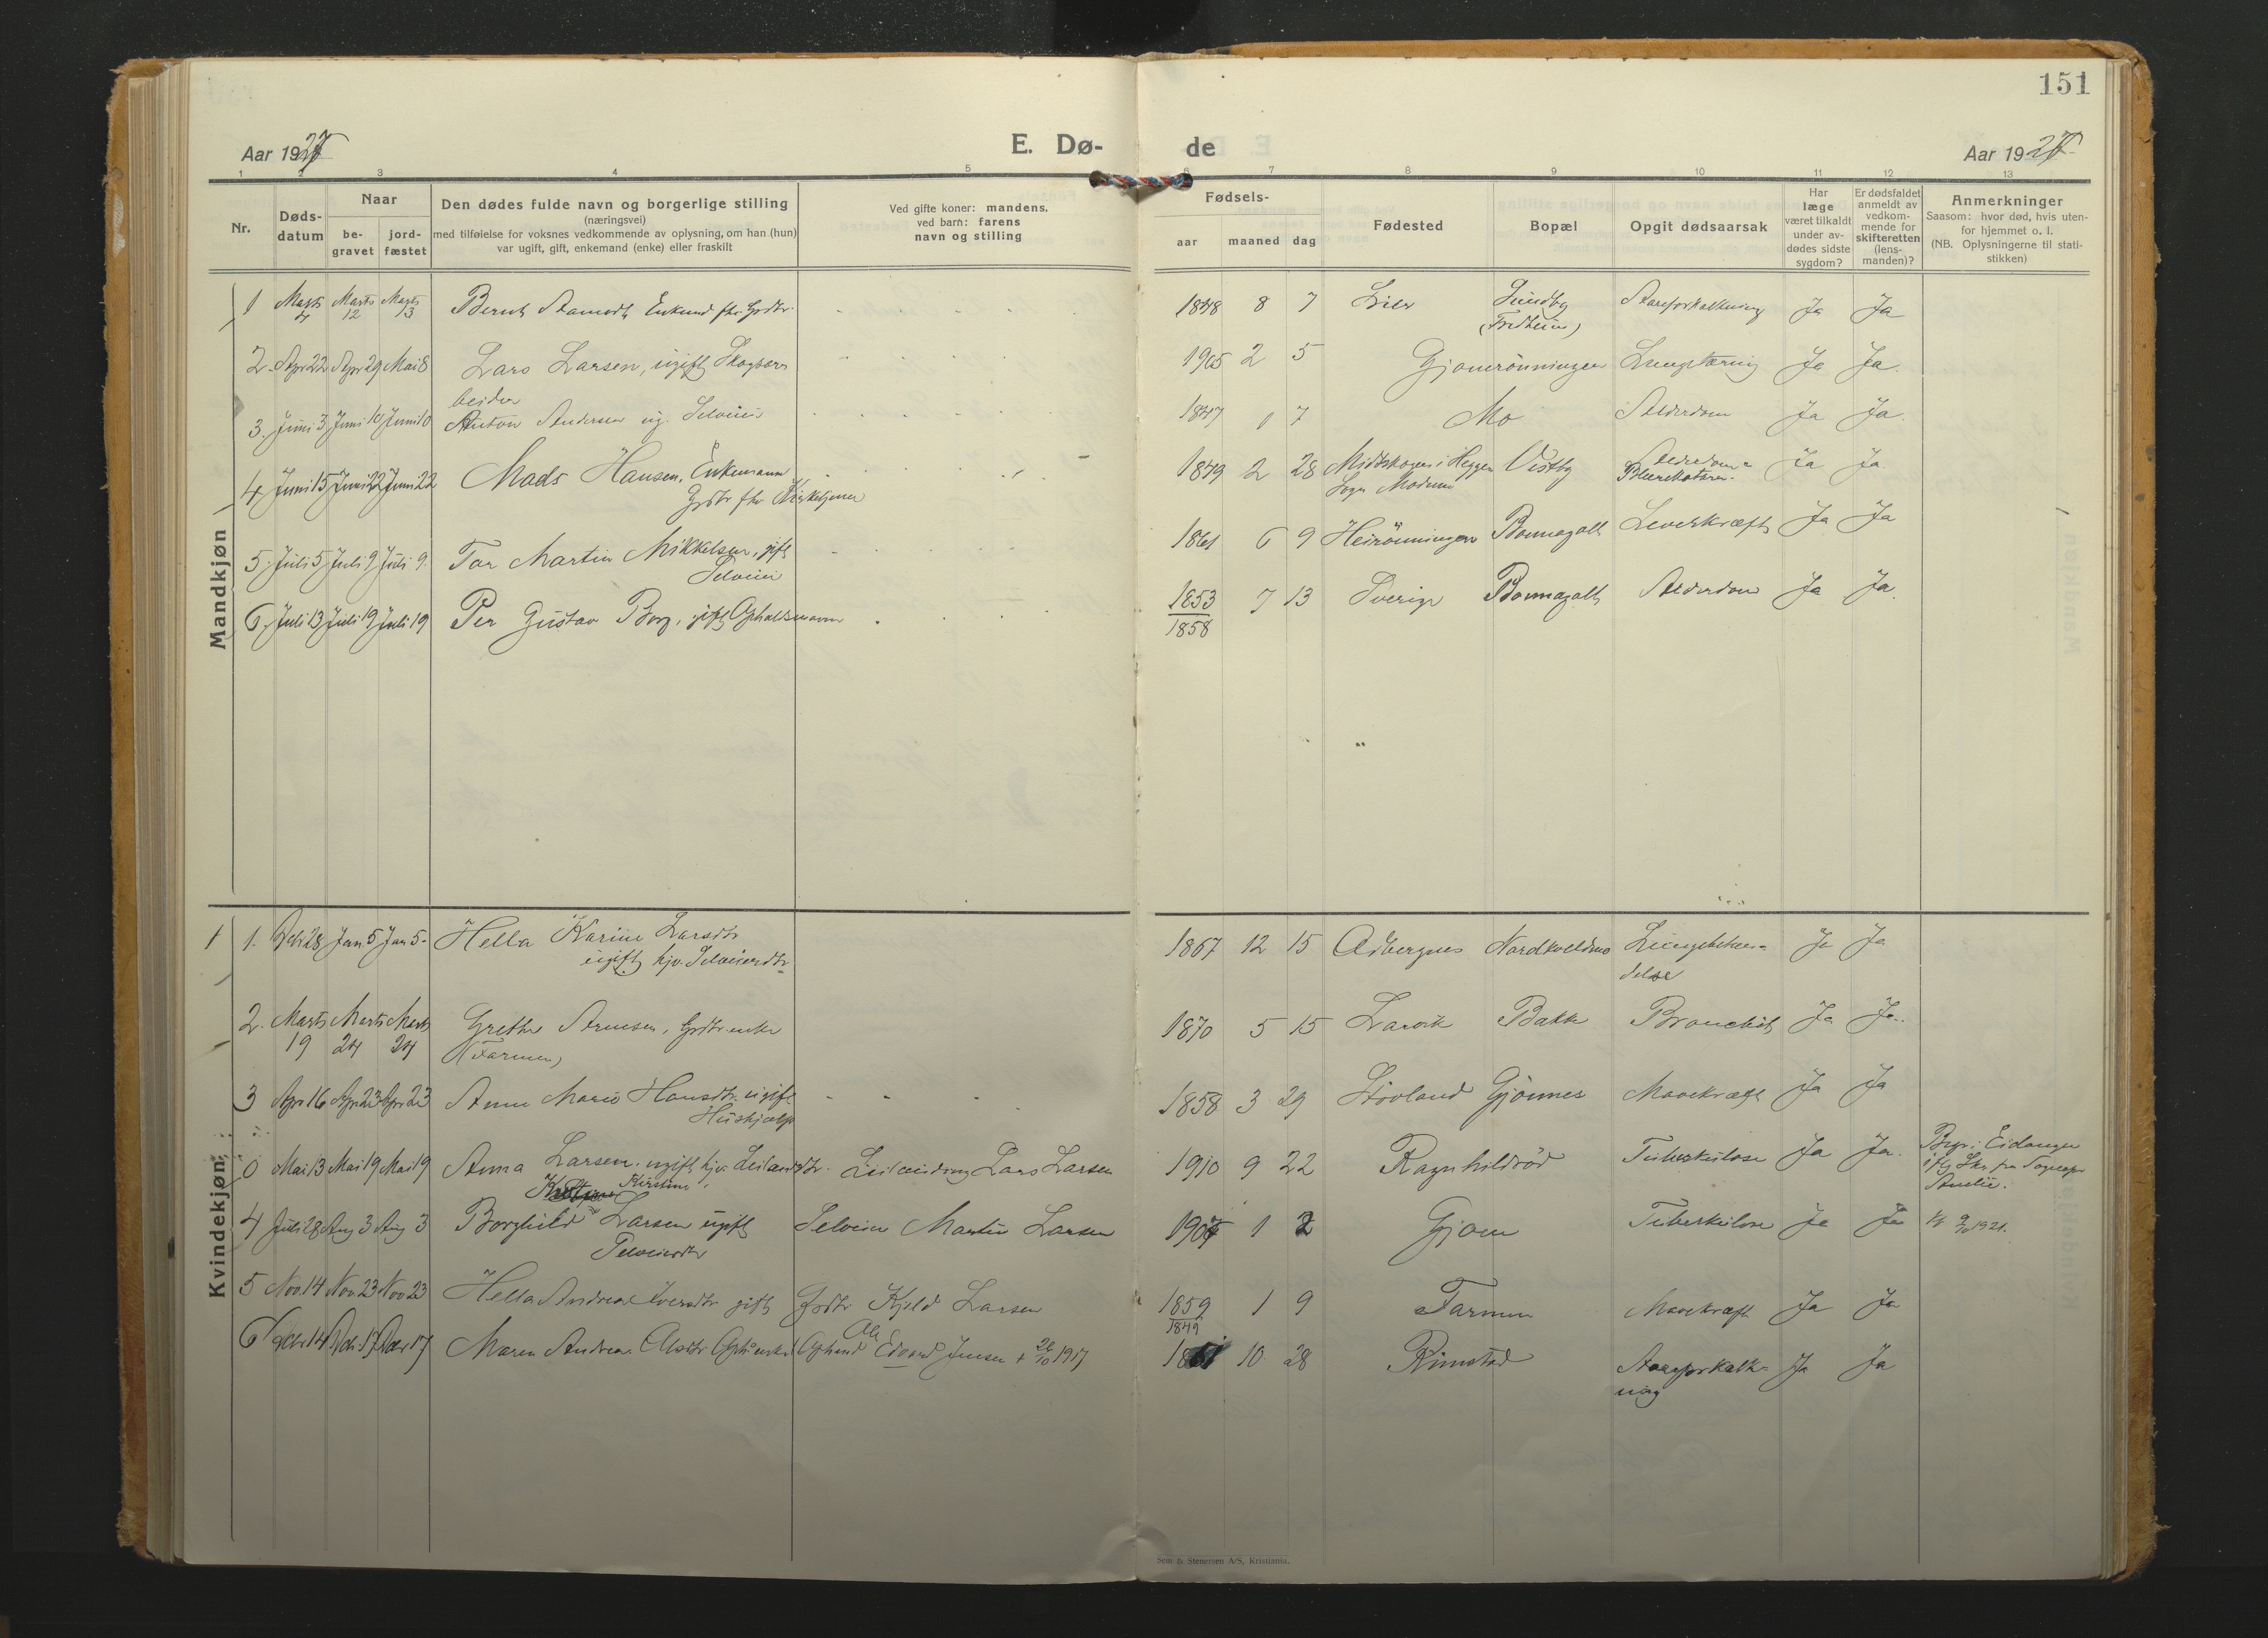 151
Aar 1927
E. Dø-
de
Aar 192
1 2 3 4 5 6 7 8 9 10 11 12 13
Nr.
Døds-
datum
Naar
be-
gravet
jord-
fæstet
Den dødes fulde navn og borgerlige stilling
(næringsvei)
med tilføielse for voksnes vedkommende av oplysning, om han (hun)
var ugift, gift, enkemand (enke) eller fraskilt
Ved gifte koner: mandens,
ved barn: farens
navn og stilling
Fødsels-
aar maaned dag
Fødested
Bopæl
Opgit dødsaarsak
Har
læge
været tilkaldt
under av-
dødes sidste
sygdom?
Er dødsfaldet
anmeldt av
vedkom-
mende for
skifteretten
(lens-
manden)?
Anmerkninger
Saasom: hvor død, hvis uten-
for hjemmet o. l.
(NB. Oplysningerne til stati-
stikken)
Mandkjøn
1 Marts 4 Marts 12 Marts 13 Bernt Enkemd fhv. Grdbr. 1848 8 7 Lier Sundby Aareforkalkning Ja Ja
(Fredheim)
2. Apr 22 Apr 29 Mai 8 Lars Larsen, ugift Skogsar- 1905 2 5 Gjonerönningen Lungetæring Ja Ja.
beider
3. Juni 3 Juni 10 Juni 10 Anton Andersen ug. Selveier 1847 1 7 Mo Alderdom Ja Ja.
4 Juni 15 Juni 22 Juni 22 Mads Hansen, Enkemann 1849 2 28 Midtskogen i Heggen Vestby Alderdom Ja Ja.
Grdbr fhv Kirketjener Sogn Modum Blærekatarr.
5. Juli 5 Juli 9 Juli 9. Tor Martin Mikkelsen, gift 1861 6 9 Heirönningen Bonnegolt Leverkræft Ja Ja
Selveier
6. Juli 13 Juli 19 Juli 19 Per Gustav Borg, gift Opholdsmann 1853 7 13 Sverige Bonnegolt Alderdom Ja Ja.
1858
Kvindekjøn
1. Dcb 28 Jan 5 Jan 5. Hella Karine Larsdtr 1867 12 15 Odbergnes Nordkveldmo Lungebeten- Ja Ja
ugift hjv. Selveierdtr delse
2. Marts 19 Marts 24 Marts 24 Grethe Arnesen, Grdbr enke 1870 5 15 Larvik Bakke Bronchit Ja Ja.
(Farmen)
3 Apr 16 Apr 23 Apr 23 Anne Marie Hansdtr. ugift 1858 3 29 Stövland Gjönnes Mavekræft Ja Ja
Huskjælp
0 Mai 13 Mai 19 Mai 19 Anna Larsen, ugift hjv. Leilændsdtr. Leilænding Lars Larsen 1910 9 22 Ragnhildröd Tuberkulose Ja Ja. Begr. i Eidanger
Kirstine
4 Juli 28 Aug 3 Aug 3 Borghild Larsen ugift Selveier Martin Larsen 1907 1 2 Gjoen Tuberkulose Ja Ja 1921.
Selveierdtr
5 Nov. 14 Nov. 23 Nov 23 Hella Andrea Iversdtr gift Grdbr Kjeld Larsen 1859 1 9 Farmen Mavekræft Ja Ja
1849
6 Dcbr 14 Dcb. 17 Dcbr 17 Maren Andrea Olsdtr. Ophs enke Ophmd Ole Edvard Jensen + 26/10 1917 10 28 Rimstad Aareforkalk- Ja Ja
ning
Sem & Stenersen A/S, Kristiania.